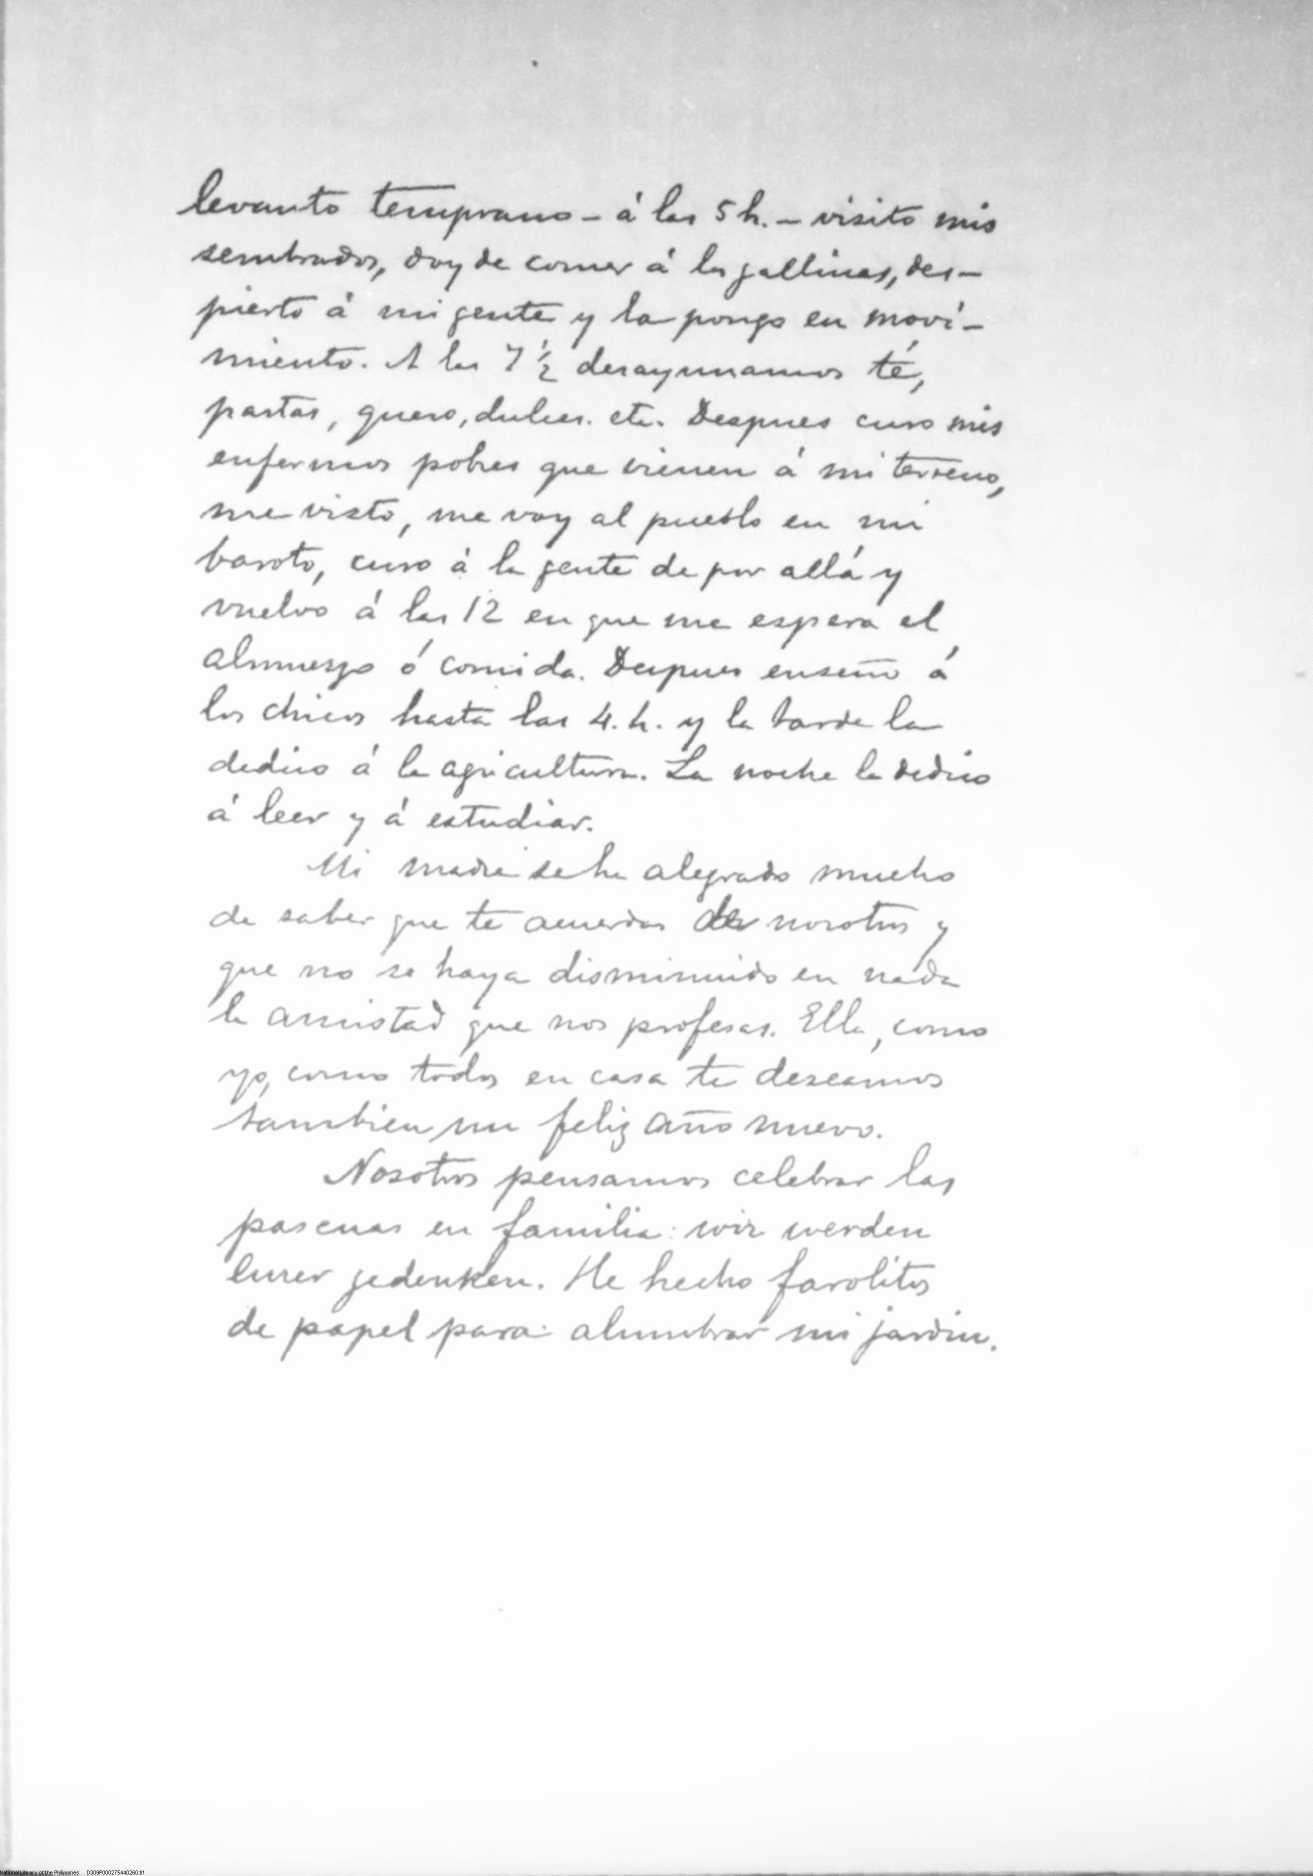 levanto temprano – á las 5 h. – visito mis
sembrados, doy de comer á las gallinas, des–
pierto á mi gente y la pongo en movi–
miento. A las 7 ½ desayunamos té,
pastas, queso, dulces. etc. Despues curo mis
enfermos pobres que vienen á mi terreno,
me visto, me voy al pueblo en mi
baroto, curo á la gente de por allá y
vuelvo á las 12 en que me espera el
almuerzo ó comida. Despues enseño á
los chicos hasta las 4. h. y la tarde la
dedico á la agricultura. La noche la dedico
á leer y á estudiar.
Mi madre se ha alegrado mucho
de saber que te acuerdas de nosotros y
que no se haya disminuido en nada
la amistad que nos profesas. Ella, como
yo, como todos en casa te deseamos
tambien un feliz año nuevo.
Nosotros pensamos celebrar las
pascuas en familia: wir werden
Eurer gedenken. He hecho farolitos
de papel para alumbrar mi jardin.
National Library of the Philippines D309P000275440260.tif